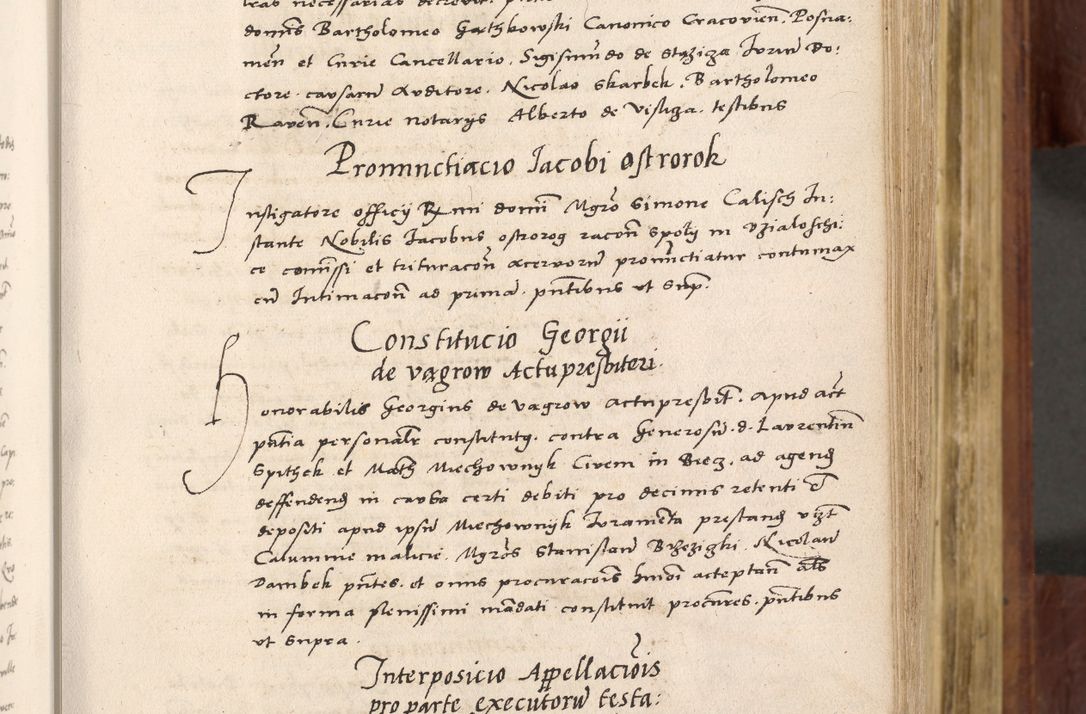 dominis Bartholomeo Ganthkowski Canonico Cracovien. Posna:
men et Curie Cancellario. Sigismundo de Stazicza Iuriu Do:
ctore. causaru Auditore. Nicolao Skarbek. Bartholomeo
Raven. Curie notarijs Alberto de Visliga. testibus
Pronunctiacio Iacobi ostrorok
Instigatore officij Rmi domi Mgro Simone Calisch In:
stante Nobilis Iacobus ostrorog racon spolij in Dzialoschi:
ce comissi et trituracon acervoru pronunctiatur contumax
cu Intimacon ad prima. pntibus ut Sup.
Constitucio Georgii
de vagrow Actu presbiteri.
Honorabilis Georgius de vagrow actu presbit. Apud act
pntia personalr constitutq. contra Generosu. d. Laurentiu
Spithek et Math Miechownyk Civem in Biecz. ad agend
deffendend in causa certi debiti pro decimis retenti et
depositi apud ipsu Miechownyk Iuramenta prestand vizt
Calumnie malicie. Mgros Stanislau Brzezigki. Nicolau
Dambek pntes. et omis procuracois hmoi acceptan als
in forma plenissimi mandati constituit procures. pntibus
ut Supra.
Interposicio Appellaciois
pro parte executoru testa: